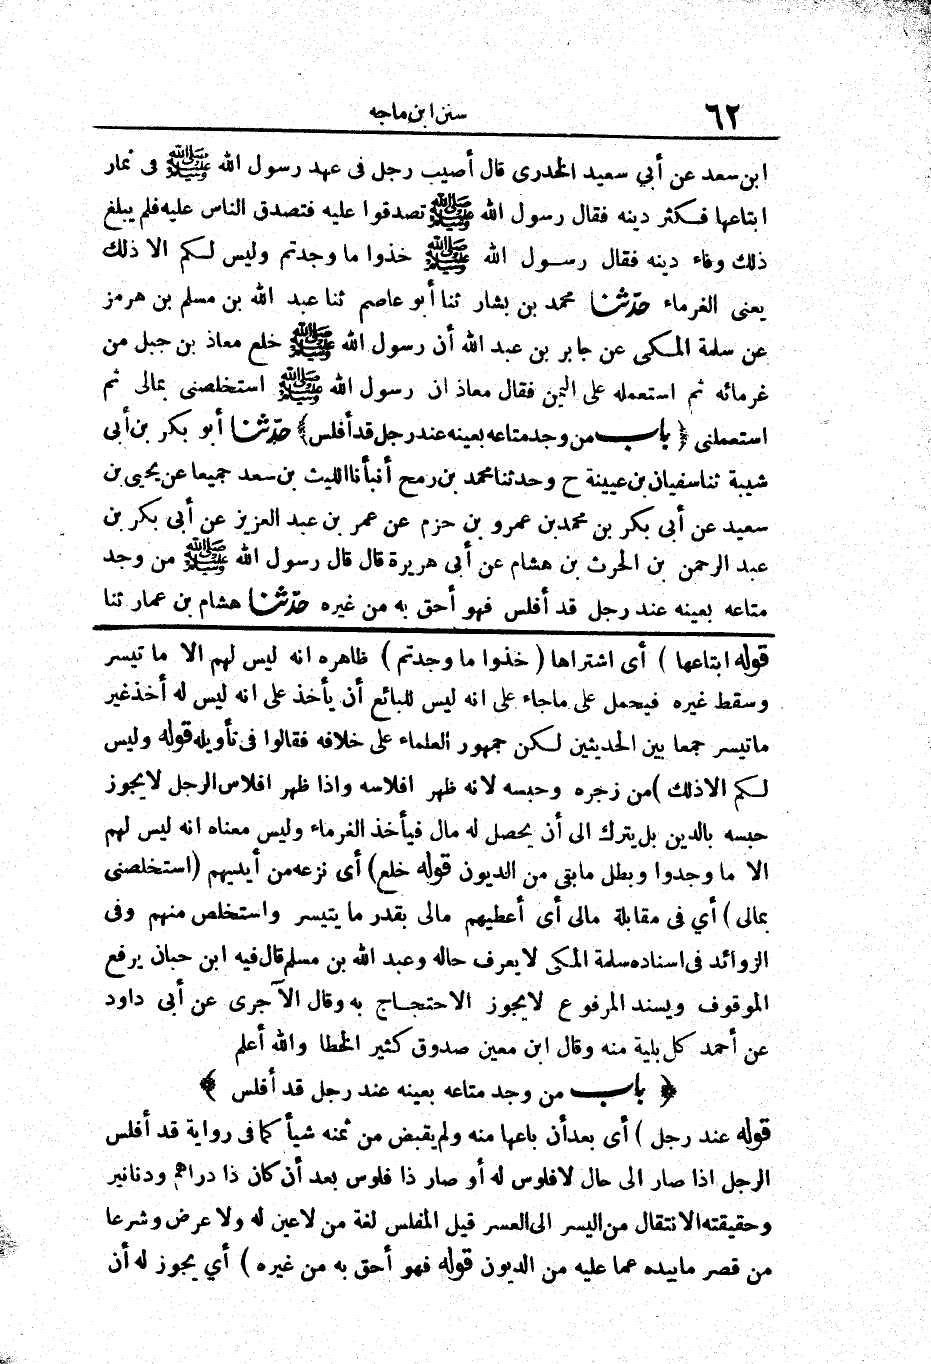 ٦٢
سنن ابن ماجه
ابن سعد عن أبي سعيد الخدرى قال أصيب رجل فى عهد رسول الله ﷺ فى ثمار
ابتاعها فكثر دينه فقال رسول الله ﷺ تصدقوا عليه فتصدق الناس عليه فلم يبلغ
ذلك وفاء دينه فقال رسول الله ﷺ خذوا ما وجدتم وليس لكم الا ذلك
يعنى الغرماء حدّثنا محمد بن بشار ثنا أبو عاصم ثنا عبد الله بن مسلم بن هرمز
عن سلمة المكى عن جابر بن عبد الله أن رسول الله ﷺ خلع معاذ بن جبل من
غرمائه ثم استعمله على اليمن فقال معاذ ان رسول الله ﷺ استخلصنى بمالى ثم
استعملنى ﴿ باب من وجد متاعه بعينه عند رجل قد أفلس﴾ حدّثنا أبو بكر بن أبى
شيبة ثنا سفيان بن عيينة ح وحدثنا محمد بن رمح أنبأنا الليث بن سعد جميعا عن يحيى بن
سعيد عن أبى بكر بن محمد بن عمرو بن حزم عن عمر بن عبد العزيز عن أبى بكر بن
عبد الرحمن بن الحرث بن هشام عن أبى هريرة قال قال رسول الله ﷺ من وجد
متاعه بعينه عند رجل قد أفلس فهو أحق به من غيره حدّثنا هشام بن عمار ثنا
قوله ابتاعها ) أى اشتراها ( خذوا ما وجدتم ) ظاهره انه ليس لهم الا ما تيسر
وسقط غيره فيحمل على ماجاء على انه ليس للبائع أن يأخذ على انه ليس له أخذ غير
ماتيسر جمعا بين الحديثين لكن جمهور العلماء على خلافه فقالوا فى تأويله قوله وليس
لكم الا ذلك )من زجره وحبسه لانه ظهر افلاسه واذا ظهر افلاس الرجل لايجوز
حبسه بالدين بل يترك الى أن يحصل له مال فيأخذ الغرماء وليس معناه انه ليس لهم
الا ما وجدوا وبطل مابقى من الديون قوله خلع) أى نزعه من أيديهم (استخلصنى
بمالى ) أي فى مقابلة مالى أى أعطيهم مالى بقدر ما يتيسر واستخلص منهم وفى
الزوائد فى اسناده سلمة المكى لا يعرف حاله وعبد الله بن مسلم قال فيه ابن حبان يرفع
الموقوف ويسند المرفوع لايجوز الاحتجاج به وقال الآجرى عن أبى داود
عن أحمد كل بلية منه وقال ابن معين صدوق كثير الخطا والله أعلم
﴿ باب من وجد متاعه بعينه عند رجل قد أفلس ﴾
قوله عند رجل ) أى بعد أن باعها منه ولم يقبض من ثمنه شيأ كما فى رواية قد أفلس
الرجل اذا صار الى حال لا فلوس له أو صار ذا فلوس بعد أن كان ذا دراهم ودنانير
وحقيقته الانتقال من اليسر الى العسر قيل المفلس لغة من لاعين له ولا عرض وشرعا
من قصر مابيده عما عليه من الديون قوله فهو أحق به من غيره ) أي يجوز له أن